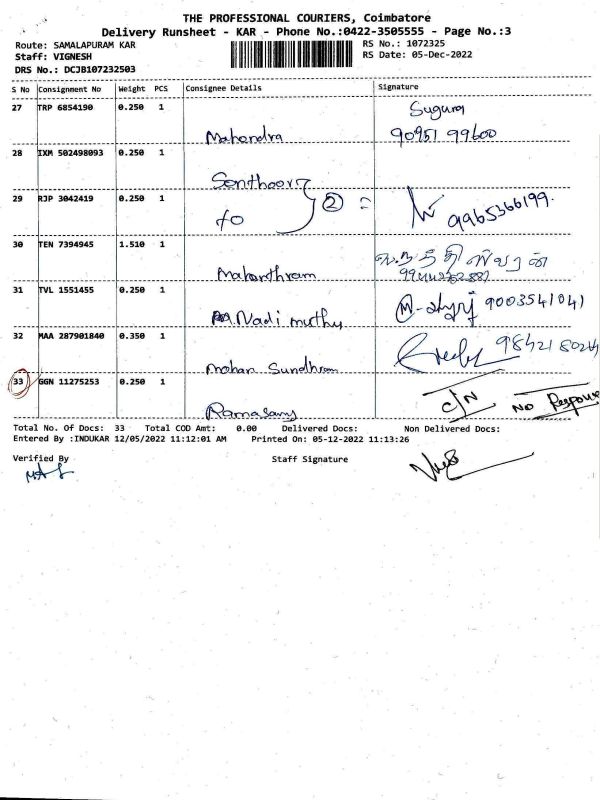 THE PROFESSIONAL COURIERS, Coimbatore
Delivery Runsheet - KAR - Phone No.:0422-3505555 - Page No.:3
Route: SAMALAPURAM KAR
RS No.: 1072325
Staff: VIGNESH
RS Date: 05-Dec-2022
DRS No.: DCJB107232503
S No Consignment No Weight PCS Consignee Details Signature
27 TRP 6854190 0.250 1
Suguna
Mahendra 90951 99600
28 IXM 502498093 0.250 1
Senthoor
29 RJP 3042419 0.250 1
to } 2 = 9965366199
30 TEN 7394945 1.510 1
Mahanthram
31 TVL 1551455 0.250 1
M. Nadi muthu 9003541041
32 MAA 287901840 0.350 1
Mohan Sundhram
33 GGN 11275253 0.250 1
Ramasamy C/N NO Response
Total No. Of Docs: 33 Total COD Amt: 0.00 Delivered Docs: Non Delivered Docs:
Entered By :INDUKAR 12/05/2022 11:12:01 AM Printed On: 05-12-2022 11:13:26
Verified By Staff Signature